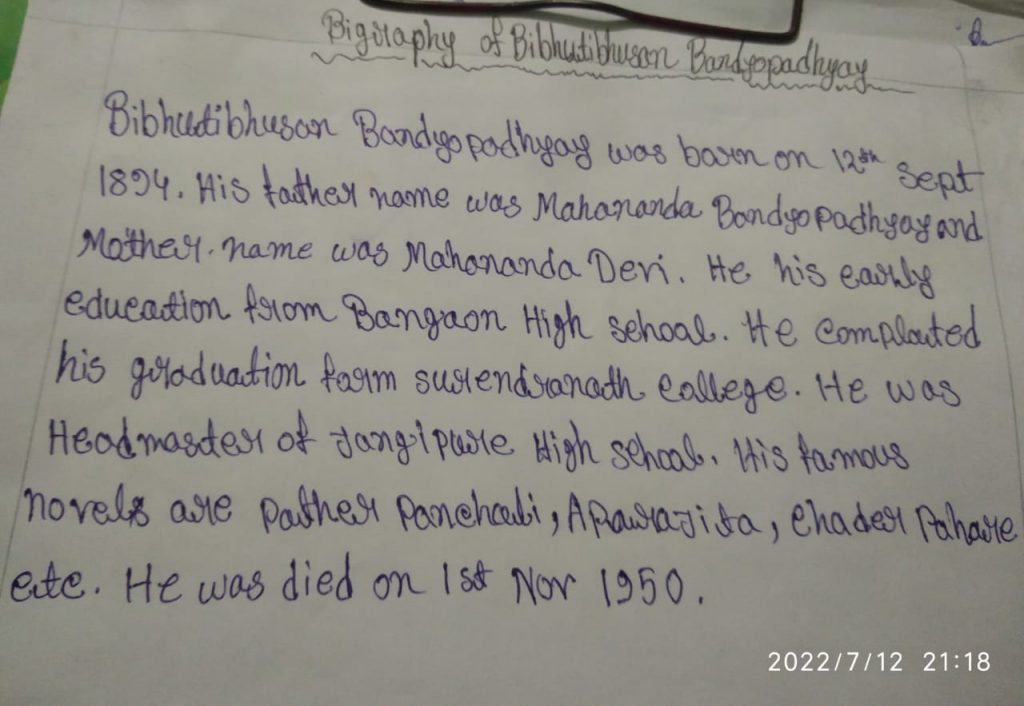 Bigiraphy of Bibhutibhusan Bandyopadhyay
Bibhutibhusan Bandyopadhyay was born on 12th Sept
1894. His father name was Mahananda Bandyopadhyay and
Mother name was Mahananda Devi. He his early
education from Bangaon High school. He complauted
his graduation farm surendranath college. He was
Headmaster of Jangipure High school. His famous
novels are Pather Panchali, Aparajita, Chader Pahare
etc. He was died on 1st Nov 1950.
2022/7/12 21:18